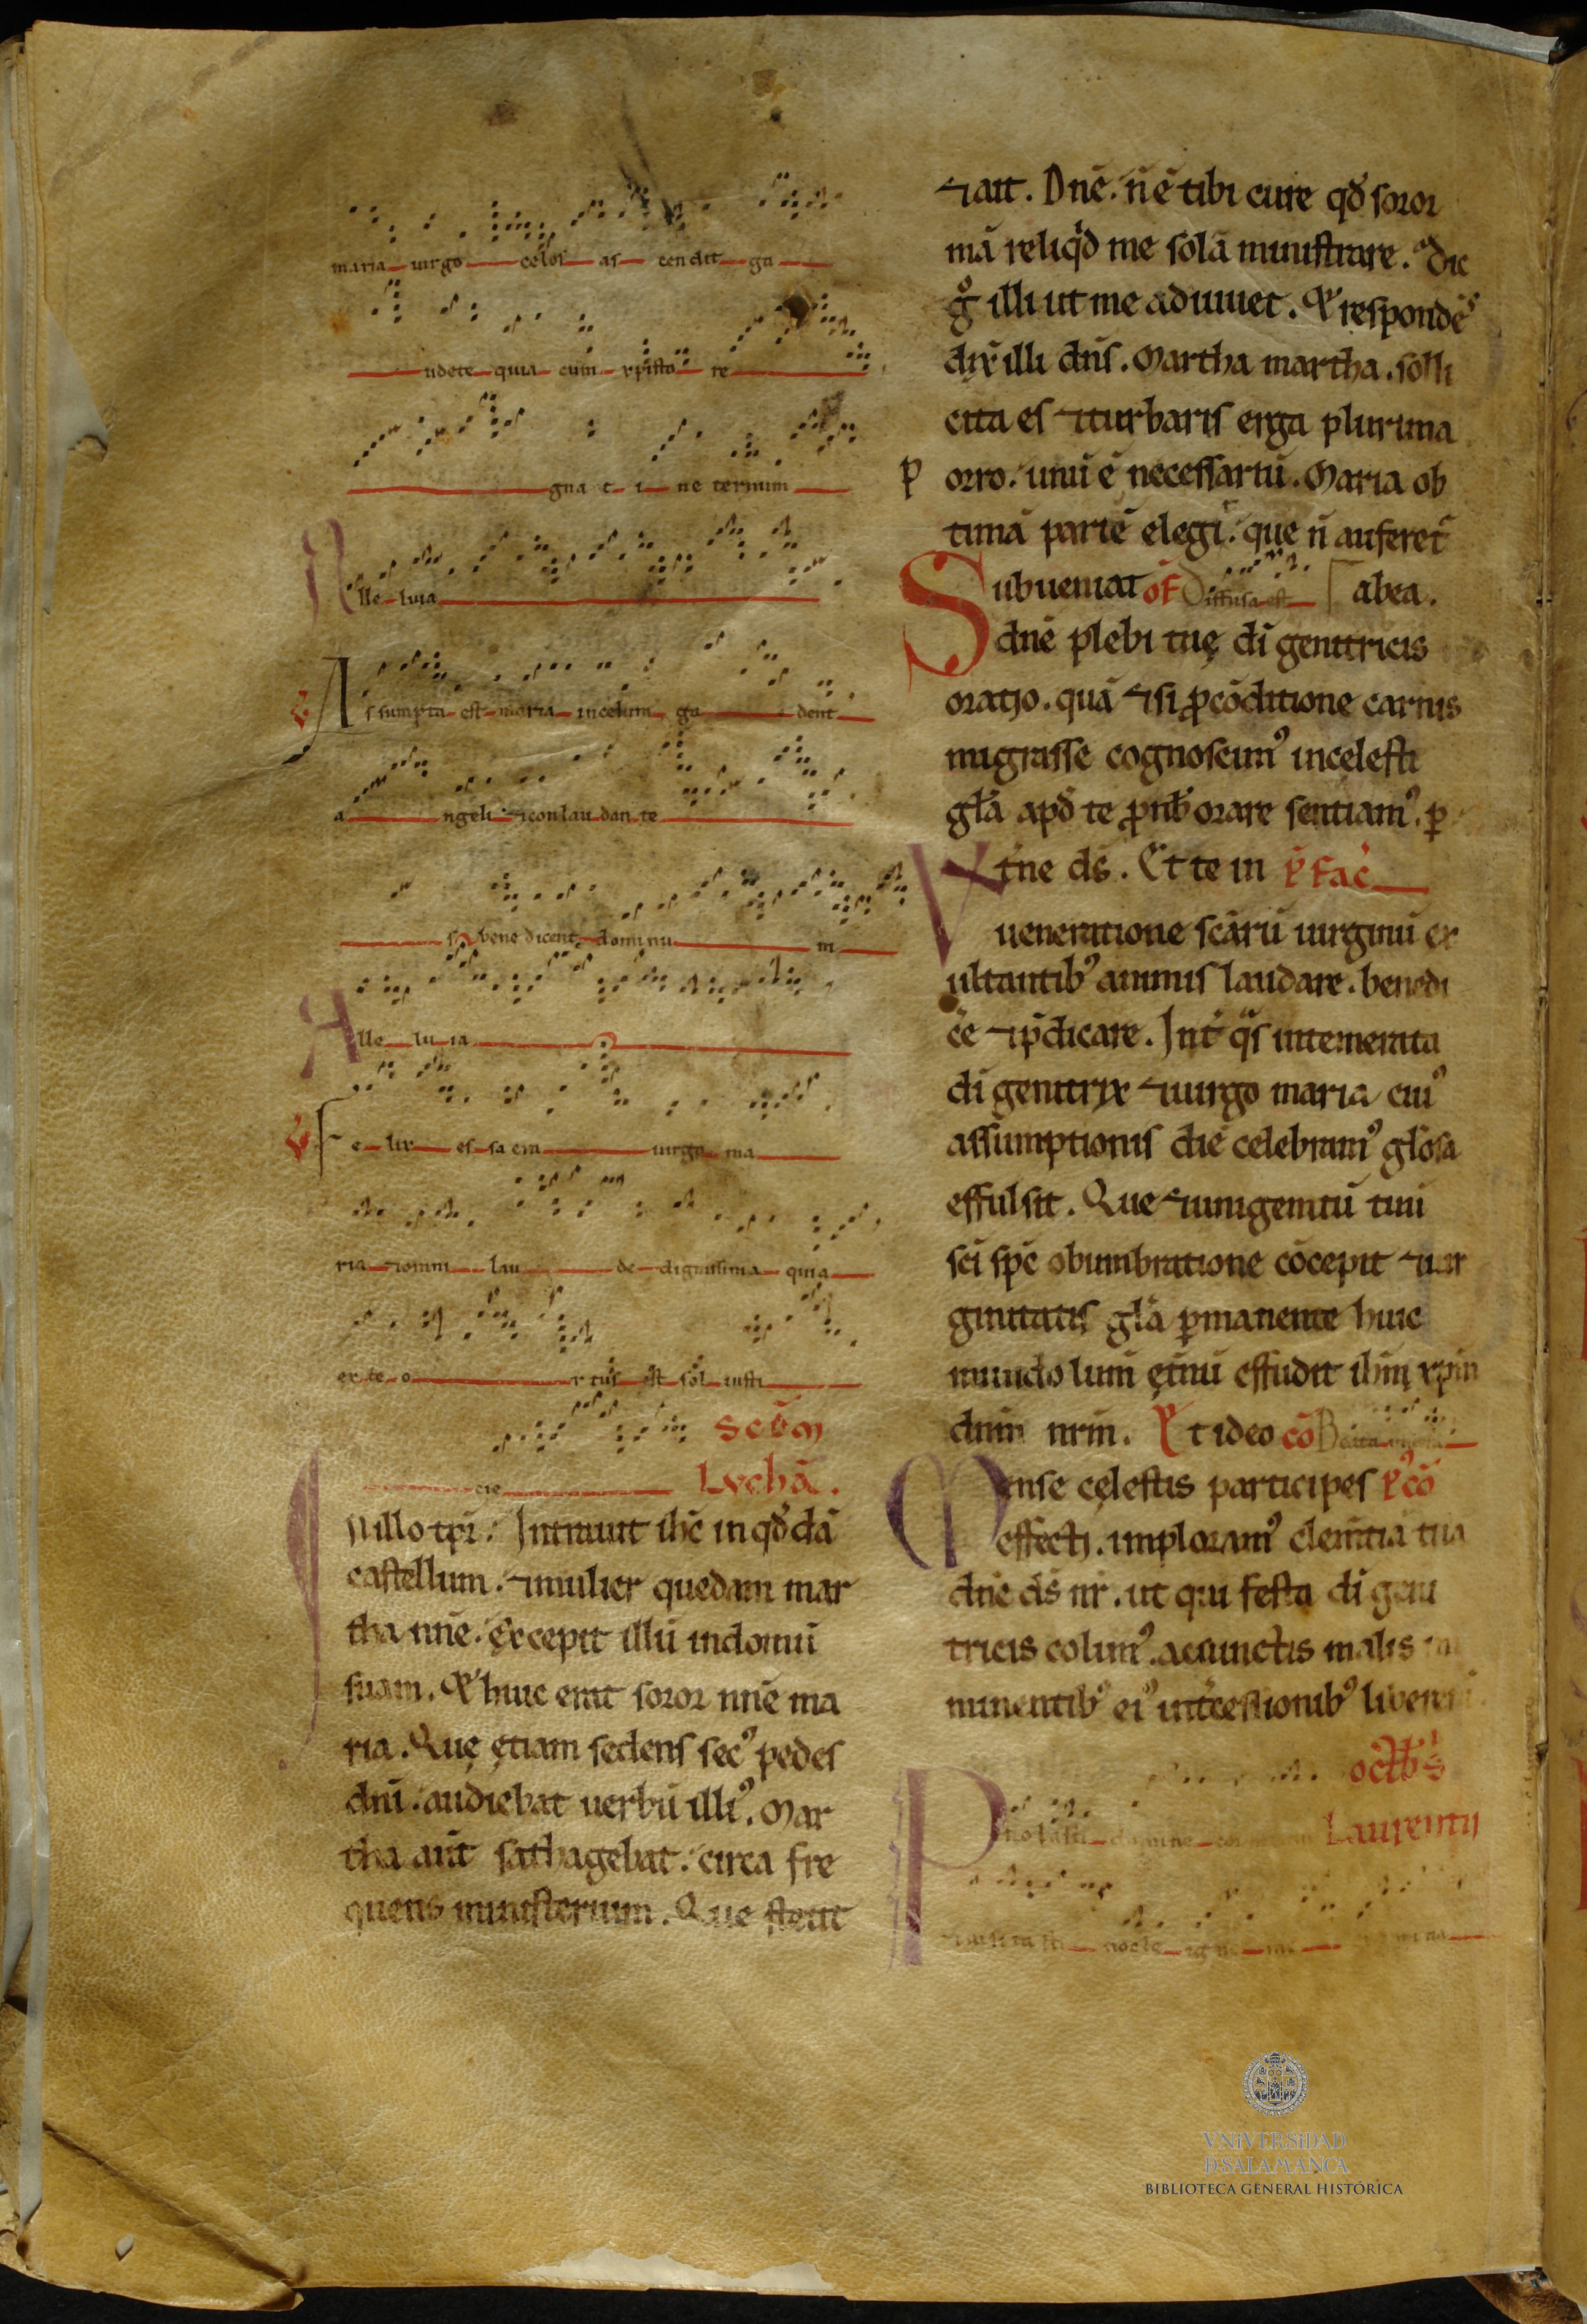 maria uirgo celos as cendit ga
udete quia cum xpisto re
gna t i ne ternum
Alle luia
℣ Assumpta est maria in celum ga dent
a ngeli ⁊ conlau dan te
s bene dicent dominu m
Alle lu ia
℣ Fe lix es sa cra uirgo ma
ria ⁊ omni lau de dignissima quia
ex te o rtus est sol iusti
Scđm
cie Luchā.
In illo tpr̄. Intrauit ihc̄ in qđdā
castellum. ⁊ mulier quedam mar
tha nn̄e. excepit illū in domū
suam. Et huic erat soror nn̄e ma
ria. Que ętiam sedens secꝰ pedes
dn̄i. audiebat uerbū illiꝰ. Mar
tha aut̄ sathagebat. circa fre
quens ministerium. Que stetit
⁊ ait. Dn̄e. n̄ ē tibi cure qđ soror
mā reliqđ me solā ministrare. dic
gͦ illi ut me adiuuet. Et respondēs
dix̄ illi dn̄s. Martha martha. solli
cita es ⁊ turbaris erga plurima
porro. unū ē necessariū. Maria ob
timā partē elegi. que n̄ auferet̄
Subueniat of Diffusa est abea.
dn̄e plebi tuę dī genitricis
oratio. quā ⁊ si ꝓ cōditione carnis
migrasse cognoscimꝰ in celesti
gl̄a apđ te ꝓ nb̄ orare sentiamꝰ. ꝑ
Vt̄ne ds̄. Et te in p̄fac̄
ueneratione sc̄arū uirginū ex
ultantibꝰ animis laudare. benedi
c̄e ⁊ p̄dicare. Int̄ qͣs intemerata
dī genitrix ⁊ uirgo maria cuiꝰ
assumptionis diē celebramꝰ gl̄osa
effulsit. Que ⁊ unigenitū tuū
sc̄i sp̄c obumbratione cōcepit ⁊ uir
ginitatis gl̄a ꝑmanente huic
mundo lum̄ et̄nū effudit ihm̄ xp̄m
dnm̄ nrm̄. Et ideo cō Beata
Mense cęlestis participes p̄ꝰcō
effecti. imploramꝰ clem̄tiā tuā
dn̄e ds̄ nr̄. ut qui festa dī geni
tricis colimꝰ. a cunctis malis im
minentibꝰ eiꝰ int̄cessionibꝰ liberem
octb̄s
Probasti domine Laurentii
⁊ uisita sti nocte igne me